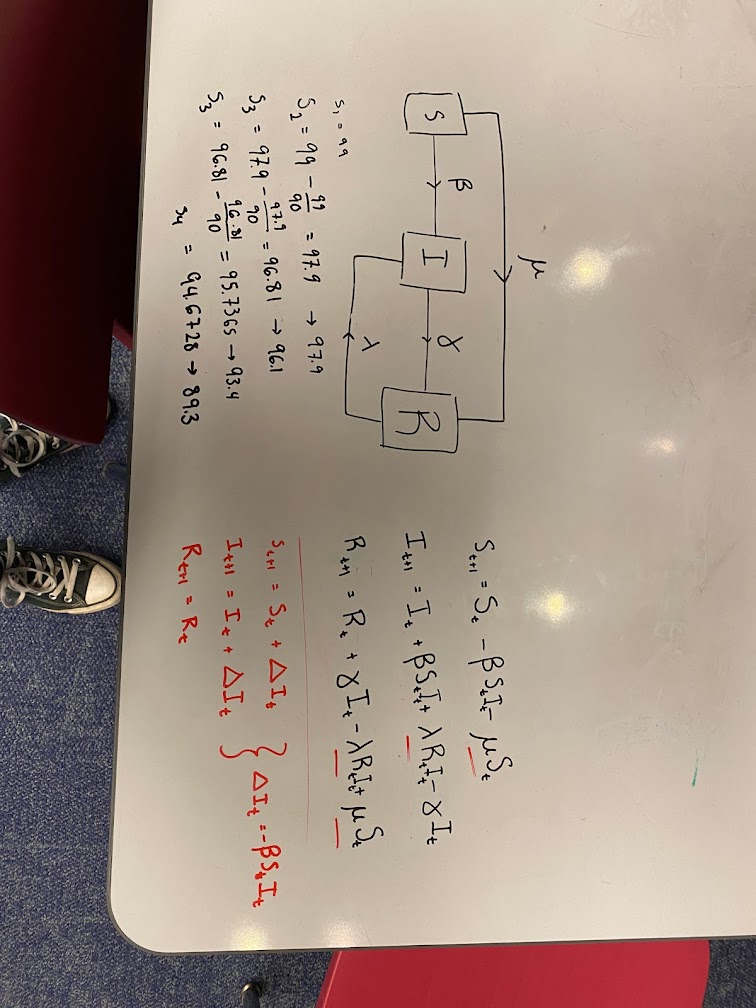 μ
β
γ
S
I
R
λ
S₁ = 99
S₂ = 99 - 99/90 = 97.9 → 97.9
S₃ = 97.9 - 97.9/90 = 96.81 → 96.1
S₃ = 96.81 - 96.81/90 = 95.7365 → 93.4
S₄ = 94.6728 → 89.3
Sₜ₊₁ = Sₜ - βSₜIₜ - μSₜ
Iₜ₊₁ = Iₜ + βSₜIₜ + λRₜIₜ - γIₜ
Rₜ₊₁ = Rₜ + γIₜ - λRₜIₜ + μSₜ
Sₜ₊₁ = Sₜ + ΔIₜ
Iₜ₊₁ = Iₜ + ΔIₜ } ΔIₜ = -βSₜIₜ
Rₜ₊₁ = Rₜ